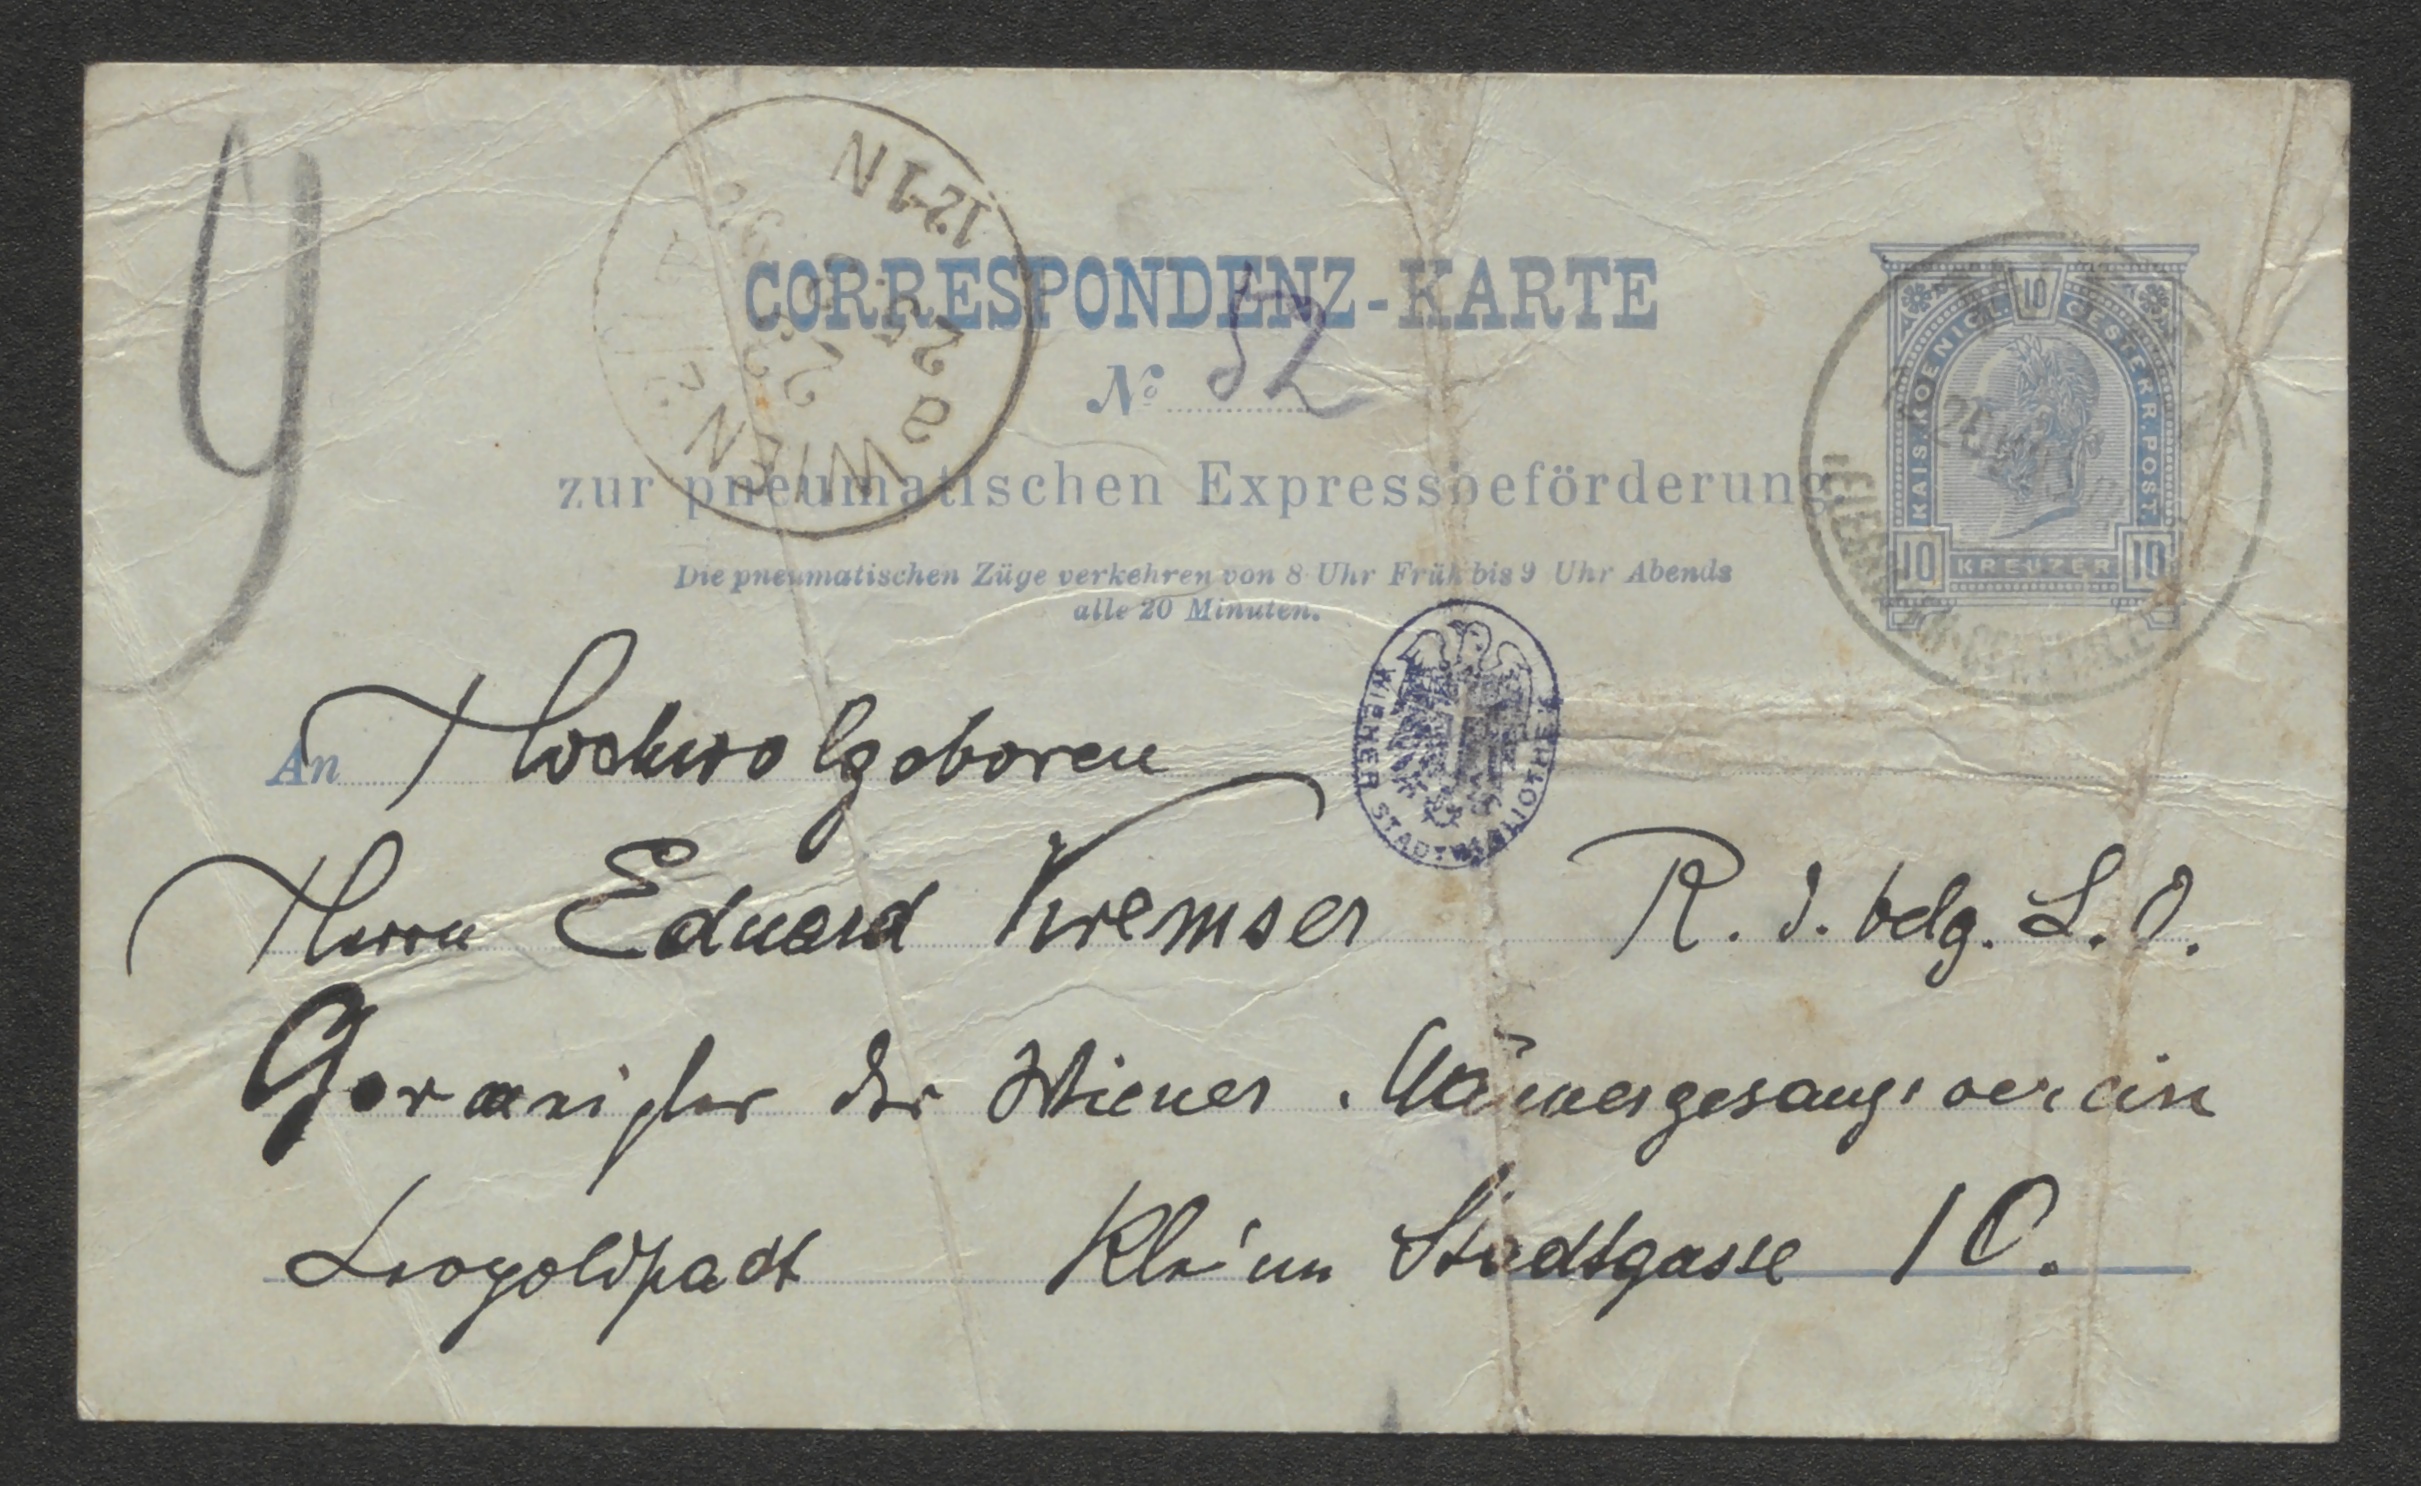 CORRESPONDENZ-KARTE
No 52
zur pneumatischen Expressbeförderung
Die pneumatischen Züge verkehren von 8 Uhr Früh bis 9 Uhr Abends
alle 20 Minuten.
12-1N
WIEN
KAIS. KOENIGL. OESTERR. POST.
10
10 KREUZER 10
WIENER STADTBIBLIOTHEK
An Hochwolgeboren
Herrn Eduard Kremser R. d. belg. L. O.
der Wiener Männergesangsverein
Leopoldstadt Kleine Stadtgasse 10.